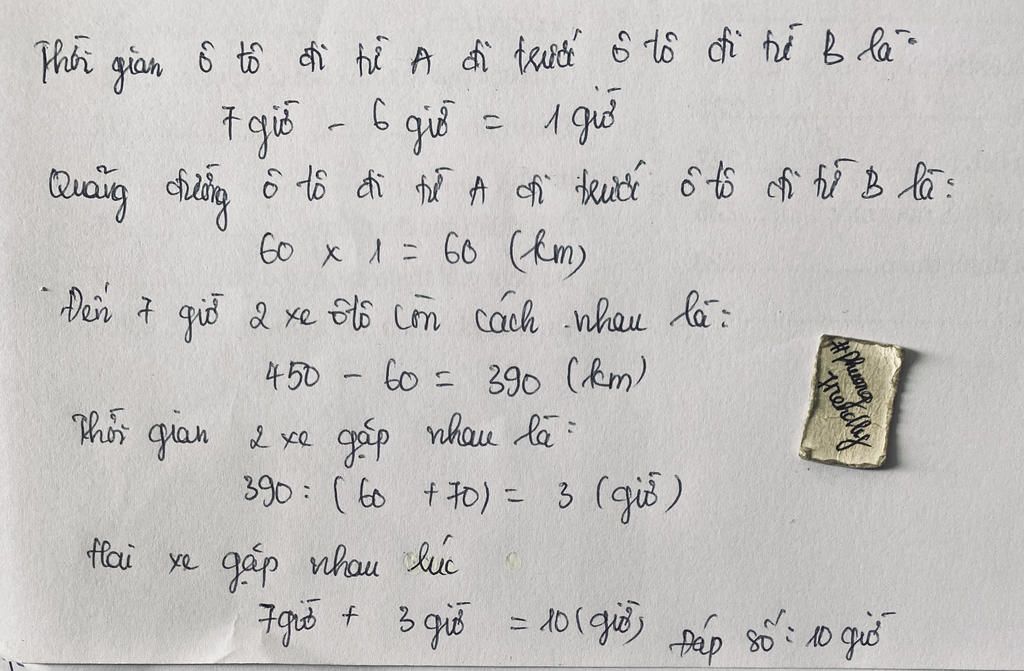 Thời gian ô tô đi từ A đi trước ô tô đi từ B là:
7 giờ - 6 giờ = 1 giờ
Quãng đường ô tô đi từ A đi trước ô tô đi từ B là:
60 x 1 = 60 (km)
Đến 7 giờ 2 xe ôtô còn cách nhau là:
450 - 60 = 390 (km)
Thời gian 2 xe gặp nhau là:
390 : (60 + 70) = 3 (giờ)
Hai xe gặp nhau lúc
7giờ + 3 giờ = 10 (giờ) Đáp số: 10 giờ
#Phuong